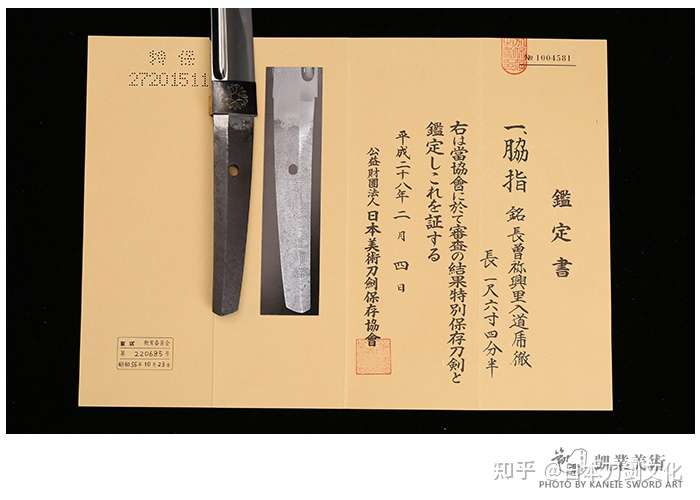 № 1004581
鑑定書
一、脇指 銘 長曾祢興里入道乕徹
長 一尺六寸四分半
右は當協會に於て審査の結果特別保存刀剣と
鑑定しこれを証する
平成二十八年 二月 四日
公益財團法人 日本美術刀剣保存協會
特 保
27201511
教育委員会
第 220685 号
昭和56年10月23日
知乎 @日本刀剑文化
PHOTO BY KANETE SWORD ART